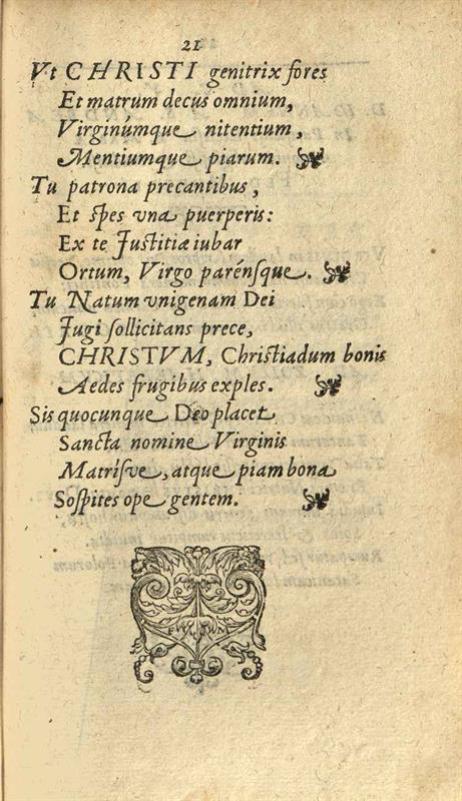 21
Vt CHRISTI genitrix fores
Et matrum decus omnium,
Virginúmque nitentium,
Mentiumque piarum.
Tu patrona precantibus,
Et spes vna puerperis:
Ex te Justitiæ iubar
Ortum, Virgo parénsque.
Tu Natum vnigenam Dei
Jugi sollicitans prece,
CHRISTVM, Christiadum bonis
Aedes frugibus exples.
Sis quocunque Deo placet
Sancta nomine Virginis
Matrísve, atque piam bona
Sospites ope gentem.